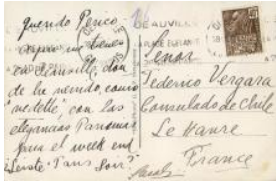 Querido Perico:
aquí me tienes
en Deauville, don
de he venido, como
"vedette", con las
elegancias Panamá
para el week end
¿Leiste "Paris Soir"?
DEAUVILLE
Senor
Federico Vergara
Consulado de Chile
Le Havre
France